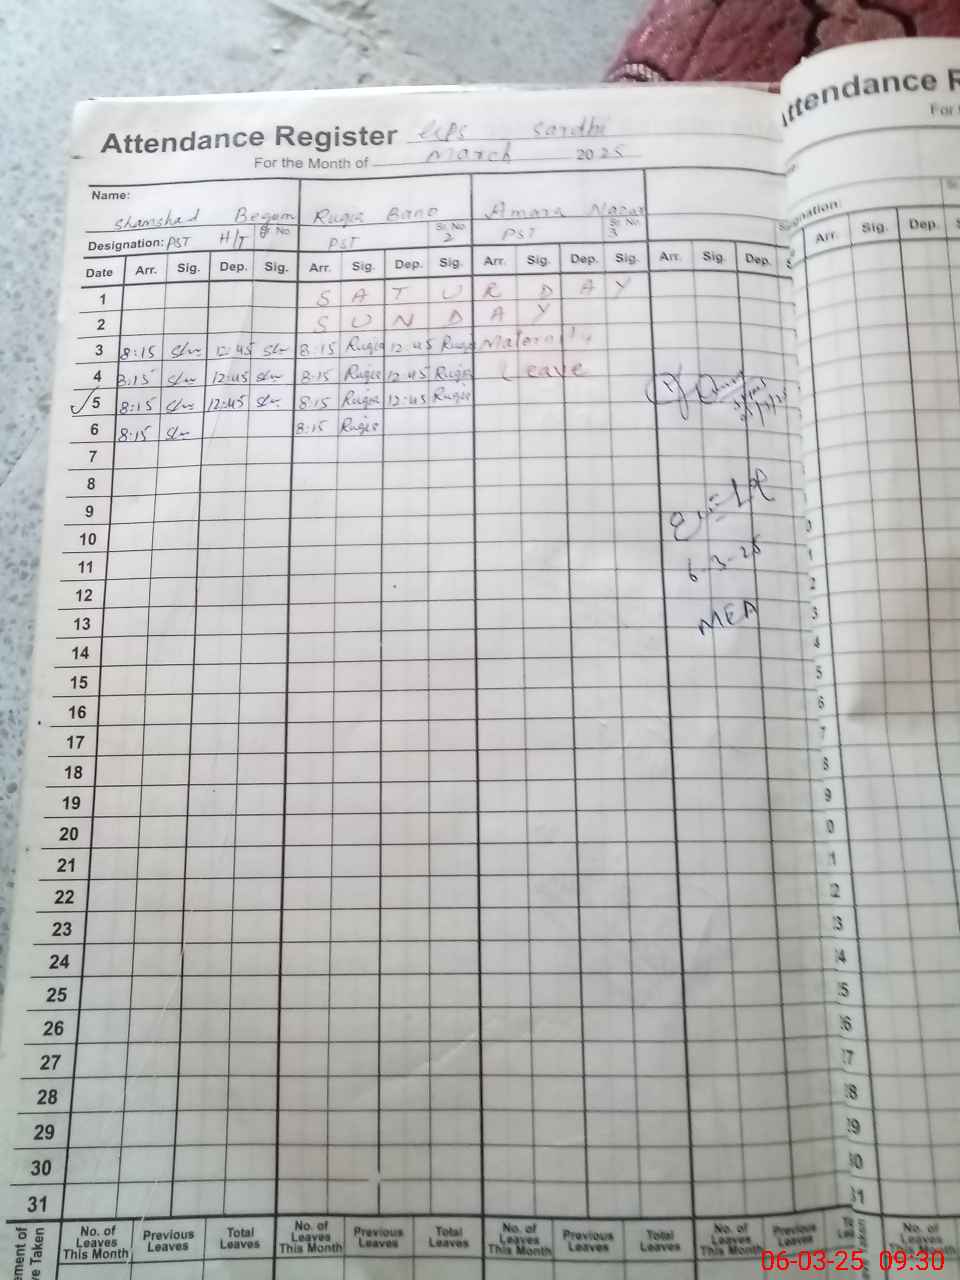 Attendance Register GGPS Sardhi
For the Month of March 2025
Name: Shamshad Begum Ruqia Bano Amara Nazar
Designation: PST H/T Sr. No. PST Sr. No. 2 PST Sr. No. 3
Date Arr. Sig. Dep. Sig. Arr. Sig. Dep. Sig. Arr. Sig. Dep. Sig. Arr. Sig. Dep.
1 S A T U R D A Y
2 S U N D A Y
3 8:15 12:45 8:15 Ruqia 12:45 Ruqia Maternity
4 8:15 12:45 8:15 Ruqia 12:45 Ruqia Leave
5 8:15 12:45 8:15 Ruqia 12:45 Ruqia
6 8:15 8:15 Ruqia
7
8
9
10
6-3-25
11
12
MEA
13
14
15
16
17
18
19
20
21
22
23
24
25
26
27
28
29
30
31
No. of Leaves This Month Previous Leaves Total Leaves No. of Leaves This Month Previous Leaves Total Leaves No. of Leaves This Month Previous Leaves Total Leaves No. of Leaves This Month Previous Leaves
Attendance R
Arr. Sig. Dep.
No. of
06-03-25 09:30